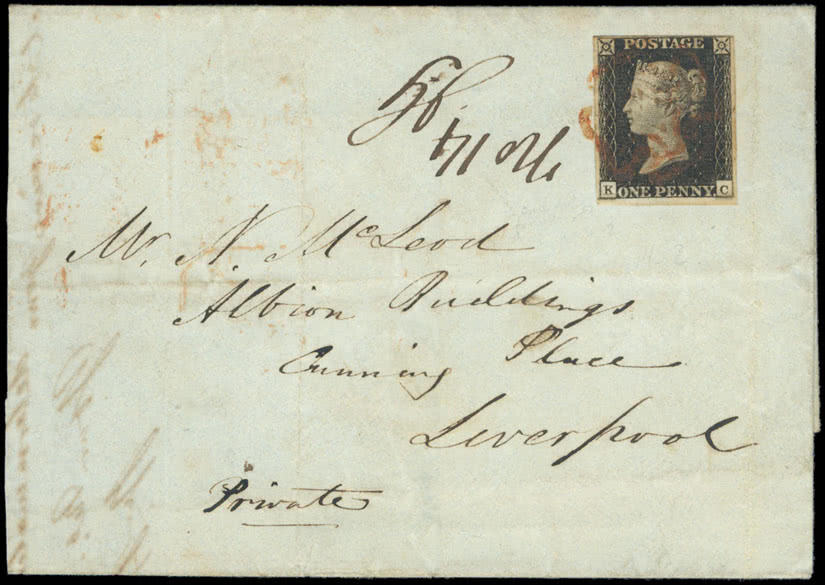 POSTAGE
K ONE PENNY C
Mr. N. McLeod
Albion Buildings
Cunning Place
Liverpool
Private